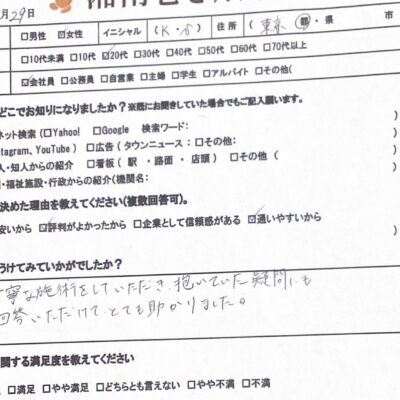 月29日
□男性 ☑女性 イニシャル ( K・S ) 住所 (東京 都・県 市
□10代未満 □10代 ☑20代 □30代 □40代 □50代 □60代 □70代以上
☑会社員 □公務員 □自営業 □主婦 □学生 □アルバイト □その他(
どこでお知りになりましたか?※既にお聞きしていた場合でもご記入願います。
ネット検索(□Yahoo! □Google 検索ワード: )
tagram、YouTube) □広告(タウンニュース:□その他: )
人・知人からの紹介 □看板( 駅 ・ 路面 ・ 店頭 ) □その他 ( )
・福祉施設・行政からの紹介(機関名: )
決めた理由を教えてください(複数回答可)。
安いから ☑評判がよかったから □企業として信頼感がある ☑通いやすいから
)
うけてみていかがでしたか?
寧な施術をしていただき、抱いていた疑問にも
回答いただけて、とても助かりました。
関する満足度を教えてください
□満足 □やや満足 □どちらとも言えない □やや不満 □不満